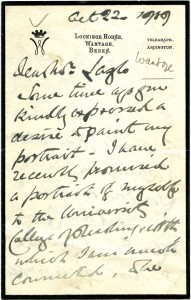 Oct 22 1919
LOCKINGE HOUSE,
WANTAGE,
BERKS.
TELEGRAPH,
ARDINGTON.
Wantage
Dear Mr Laszlo
Some time ago you
kindly expressed a
desire to paint my
portrait - I have
recently promised
a portrait of myself
to the University
College of Reading with
which I am much
connected. The